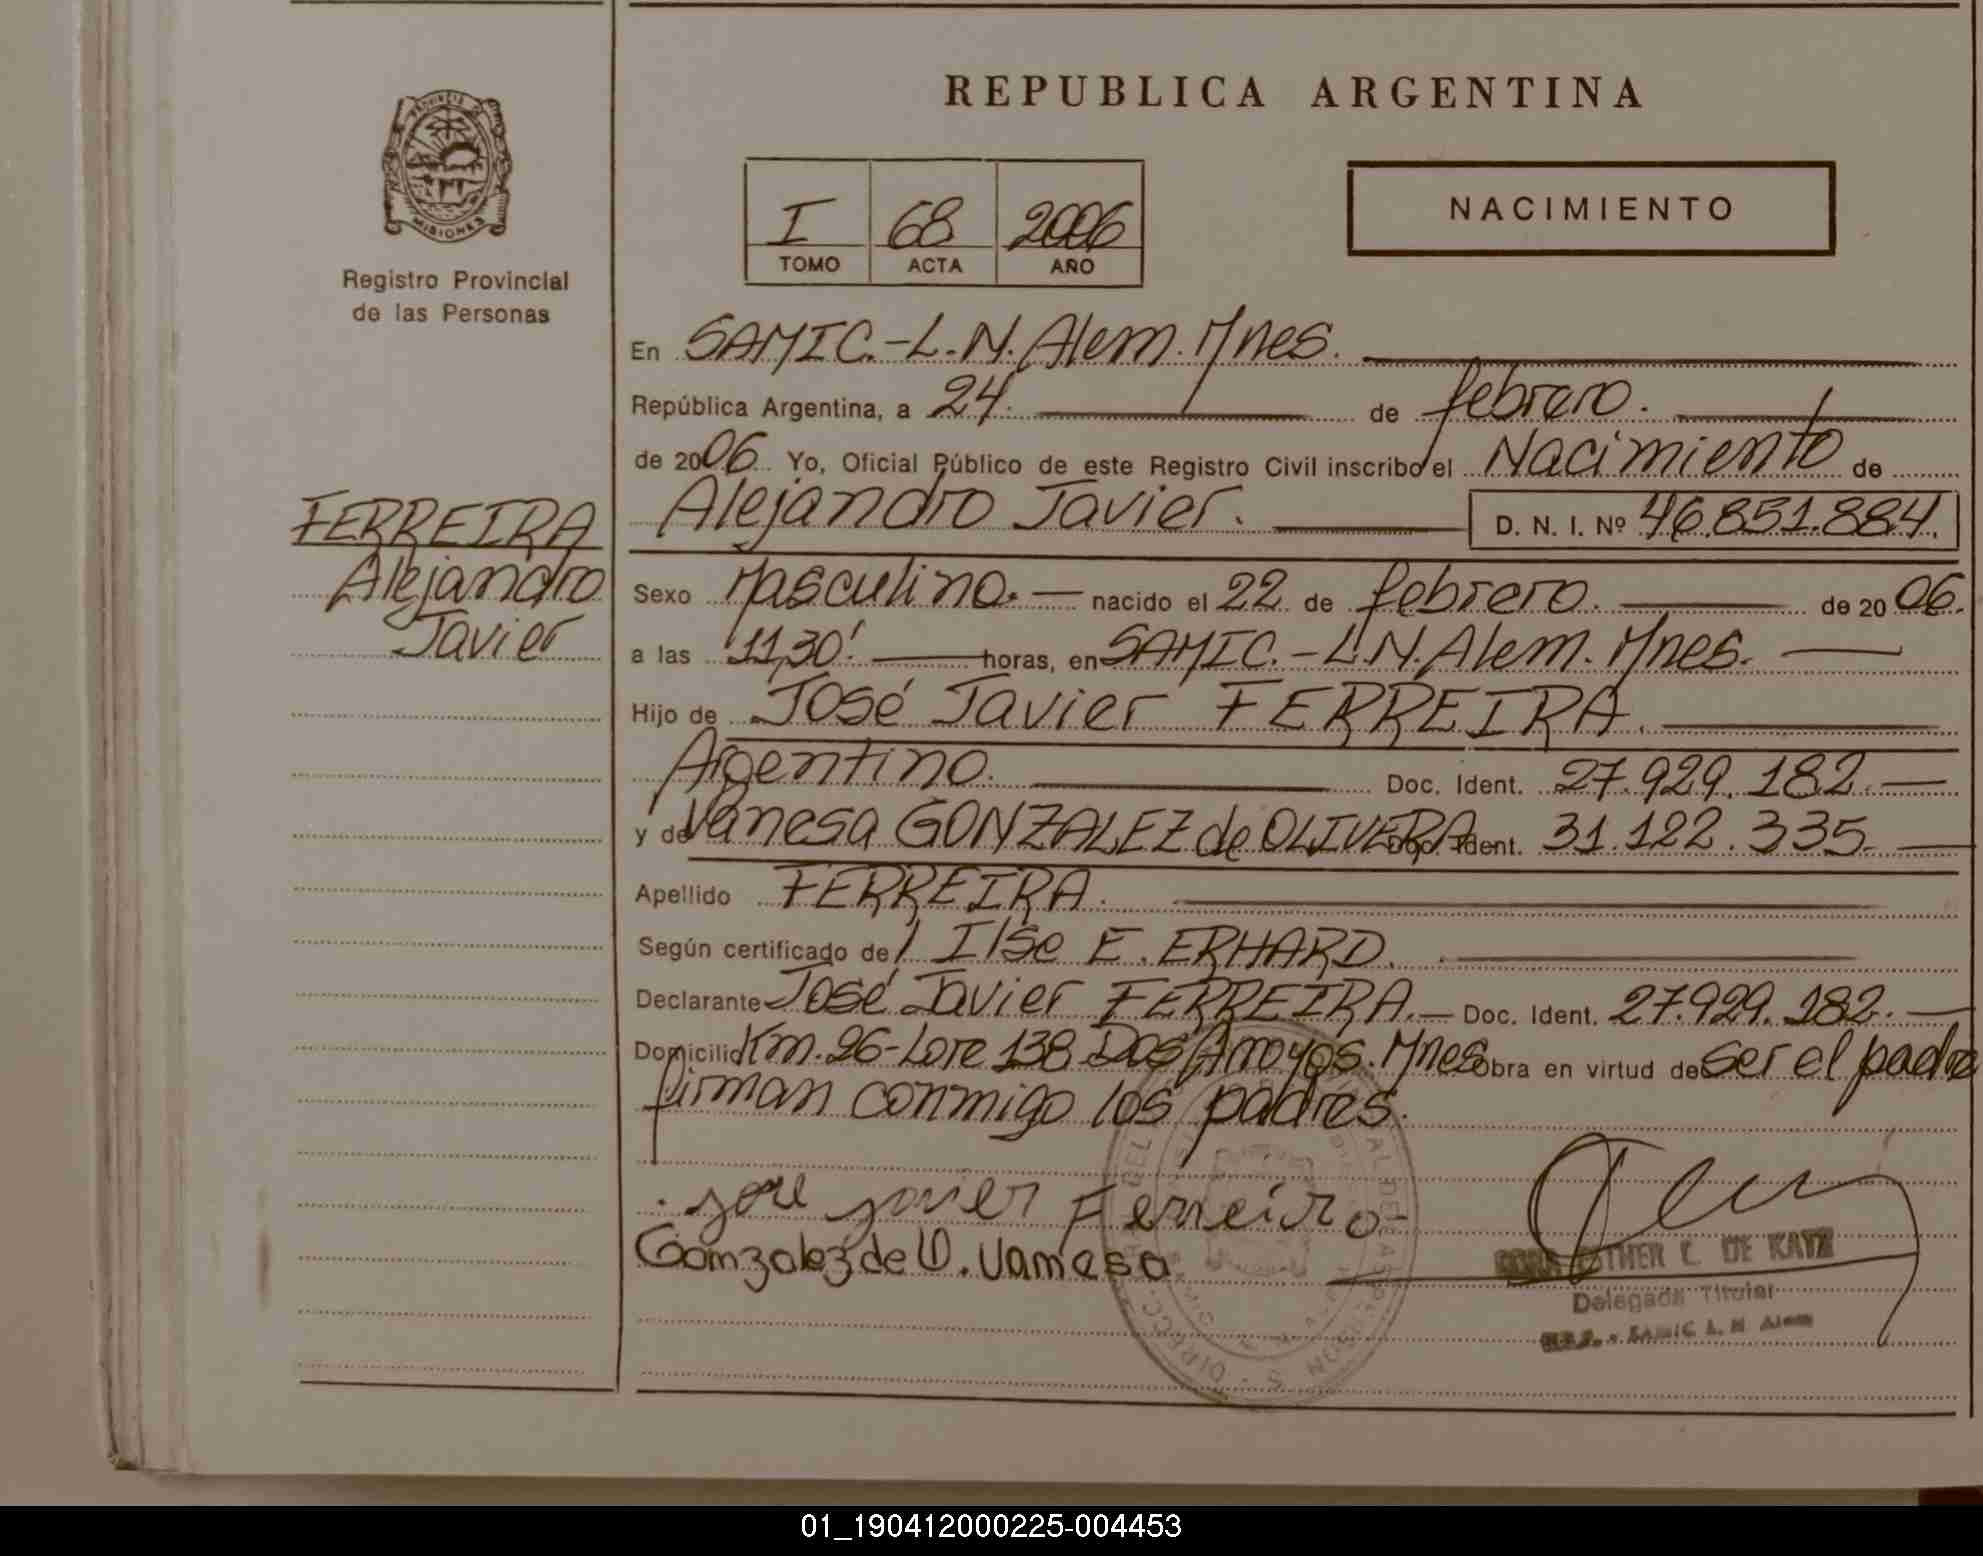 REPUBLICA ARGENTINA
PROVINCIA DE
MISIONES
Registro Provincial
de las Personas
NACIMIENTO
I 68 2006
TOMO ACTA AÑO
En SAMIC.-L.N. Alem. Mnes.
República Argentina, a 24. de febrero.
de 2006 Yo, Oficial Público de este Registro Civil inscribo el Nacimiento de
Alejandro Javier. D. N. I. Nº 46.851.884.
FERREIRA
Alejandro
Javier
Sexo Masculino.- nacido el 22 de febrero. de 2006.
a las 11,30' horas, en SAMIC.-L.N. Alem. Mnes.
Hijo de José Javier FERREIRA.
Argentino. Doc. Ident. 27.929.182.-
y de Vanesa GONZALEZ de OLIVERA Doc. Ident. 31.122.335.-
Apellido FERREIRA.
Según certificado de Ilse E. ERHARD.
Declarante José Javier FERREIRA.- Doc. Ident. 27.929.182.-
Domicilio Km.26-Lote 138 Dos Arroyos. Mnes Obra en virtud de ser el padre
firman conmigo los padres.
José Javier Ferreira
Gomzalez de O. Vamesa
ESTHER C. DE KATZ
Delegada Titular
SAMIC L. N Alem
01_190412000225-004453